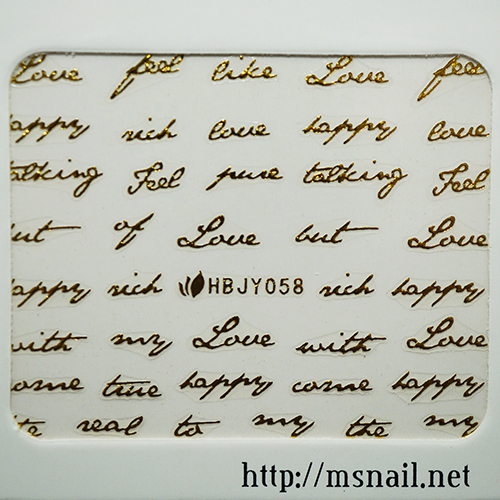 Love feel like Love feel
happy rich love happy love
talking Feel pure talking Feel
but of Love but Love
happy rich HBJY058 rich happy
with my Love with Love
come true happy come happy
real to my the my
http://msnail.net